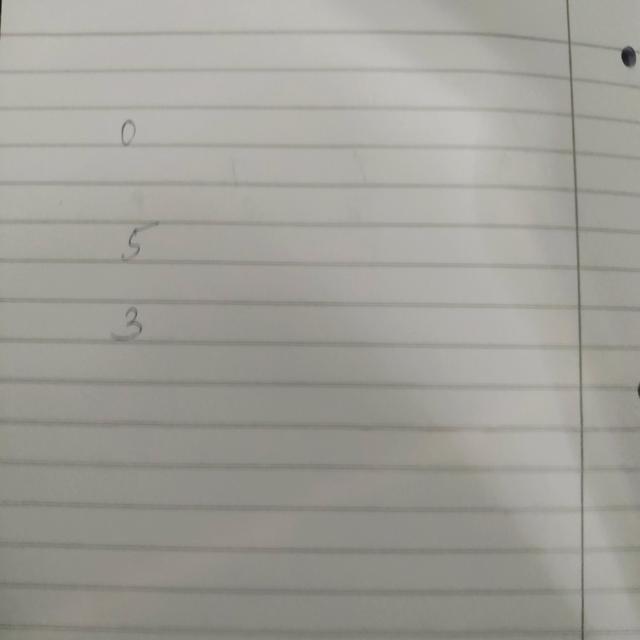 0
5
3